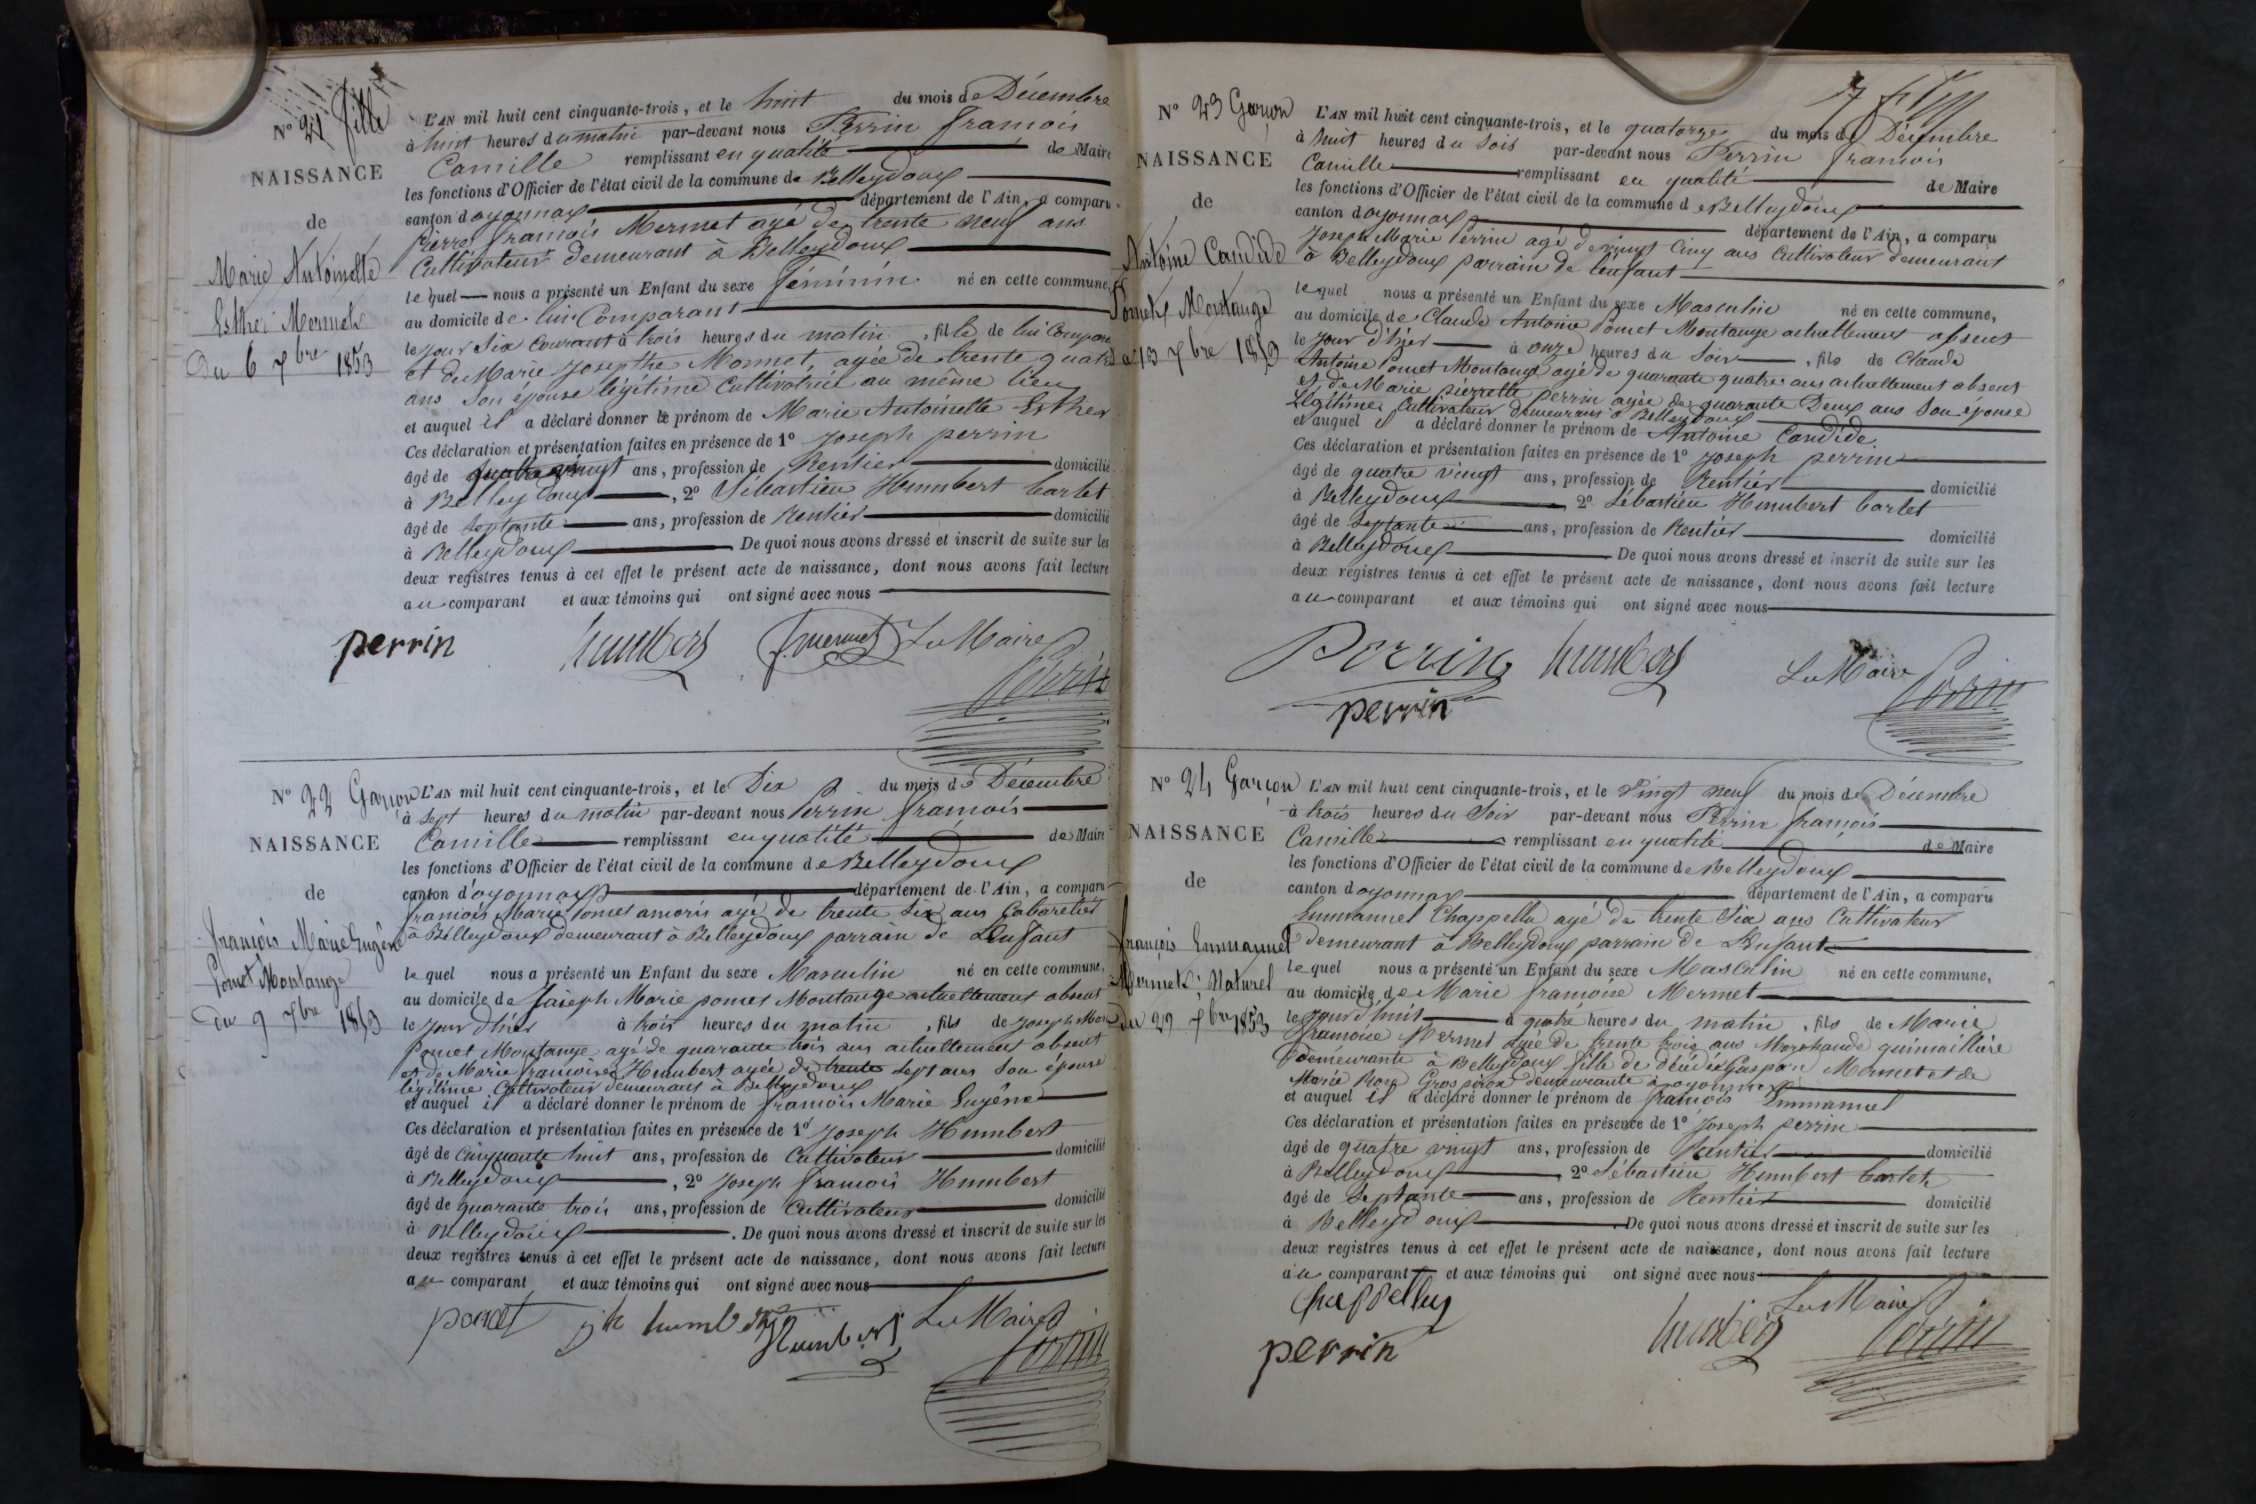 N° 21 fille
NAISSANCE
de
Marie Antoinette
Esther Mermet
Du 6 Xbre 1853
L'AN mil huit cent cinquante-trois, et le huit du mois de Décembre
à huit heures du matin par-devant nous Perrin françois
Camille remplissant en qualité de Maire
les fonctions d'Officier de l'état civil de la commune de Belleydoux
canton d'oyonnax département de l'Ain, a comparu
pierre françois Mermet agé de trente neuf ans
Cultivateur demeurant à Belleydoux
le quel nous a présenté un Enfant du sexe féminin né en cette commune,
au domicile de lui Comparant
le jour Six Courant à trois heures du matin, fille de lui Comparant
et de Marie Josephte Monnet, agée de trente quatre
ans son épouse légitime Cultivatrice au même lieu
et auquel il a déclaré donner le prénom de Marie Antoinette Esther
Ces déclaration et présentation faites en présence de 1° Joseph perrin
âgé de quatre vingt ans, profession de Rentier domicilié
à Belleydoux, 2° Sébastien Humbert Cartet
âgé de septante ans, profession de Rentier domicilié
à Belleydoux De quoi nous avons dressé et inscrit de suite sur les
deux registres tenus à cet effet le présent acte de naissance, dont nous avons fait lecture
au comparant et aux témoins qui ont signé avec nous
perrin humbert fmermet Le Maire
Perrin
N° 22 Garçon
NAISSANCE
de
françois Marie Eugêne
Pomet Montange
du 9 Xbre 1853
L'AN mil huit cent cinquante-trois, et le Dix du mois de Décembre
à sept heures du matin par-devant nous Perrin françois
Camille remplissant en qualité de Maire
les fonctions d'Officier de l'état civil de la commune de Belleydoux
canton d'oyonnax département de l'Ain, a comparu
françois Marie Pomet amoris agé de trente six ans Cabaretier
à Belleydoux demeurant à Belleydoux parrain de L'enfant
le quel nous a présenté un Enfant du sexe Masculin né en cette commune,
au domicile de Joseph Marie pomet Montange actuellement absent
le jour d'hier à trois heures du matin, fils de Joseph Marie
Pomet Montange agé de quarante trois ans actuellement absent
et de Marie françoise Humbert agée de trente sept ans son épouse
légitime Cultivateur demeurant à Belleydoux
et auquel il a déclaré donner le prénom de françois Marie Eugêne
Ces déclaration et présentation faites en présence de 1° Joseph Humbert
âgé de cinquante huit ans, profession de Cultivateur domicilié
à Belleydoux, 2° Joseph françois Humbert
âgé de quarante trois ans, profession de Cultivateur domicilié
à Belleydoux. De quoi nous avons dressé et inscrit de suite sur les
deux registres tenus à cet effet le présent acte de naissance, dont nous avons fait lecture
au comparant et aux témoins qui ont signé avec nous
pomet jh humbert Humbert Le Maire
Perrin
N° 23 Garçon
NAISSANCE
de
Antoine Candide
Pomet Montange
du 13 Xbre 1853
L'AN mil huit cent cinquante-trois, et le quatorze du mois de Décembre
à huit heures du soir par-devant nous Perrin françois
Camille remplissant en qualité de Maire
les fonctions d'Officier de l'état civil de la commune de Belleydoux
canton d'oyonnax département de l'Ain, a comparu
Joseph Marie Perrin agé de vingt Cinq ans Cultivateur demeurant
à Belleydoux parrain de l'enfant
le quel nous a présenté un Enfant du sexe Masculin né en cette commune,
au domicile de Claude Antoine Pomet Montange actuellement absent
le jour d'hier à onze heures du soir, fils de Claude
Antoine Pomet Montange agé de quarante quatre ans actuellement absent
et de Marie pierrette perrin agée de quarante Deux ans son épouse
Légitime Cultivateur demeurant à Belleydoux
et auquel il a déclaré donner le prénom de Antoine Candide
Ces déclaration et présentation faites en présence de 1° Joseph perrin
âgé de quatre vingt ans, profession de Rentier domicilié
à Belleydoux 2° Sébastien Humbert Cartet
âgé de septante ans, profession de Rentier domicilié
à Belleydoux De quoi nous avons dressé et inscrit de suite sur les
deux registres tenus à cet effet le présent acte de naissance, dont nous avons fait lecture
au comparant et aux témoins qui ont signé avec nous
Perrin humbert Le Maire
perrin Perrin
N° 24 Garçon
NAISSANCE
de
françois Emmanuel
Mermet Naturel
du 29 Xbre 1853
L'AN mil huit cent cinquante-trois, et le Vingt neuf du mois de Décembre
à trois heures du Soir par-devant nous Perrin françois
Camille remplissant en qualité de Maire
les fonctions d'Officier de l'état civil de la commune de Belleydoux
canton d'oyonnax département de l'Ain, a comparu
Emmanuel Chappellu agé de trente Six ans Cultivateur
demeurant à Belleydoux parrain de L'enfant
le quel nous a présenté un Enfant du sexe Masculin né en cette commune,
au domicile de Marie françoise Mermet
le jour d'huit à quatre heures du matin, fils de Marie
françoise Mermet agée de trente trois ans Marchande quinaillière
demeurante à Belleydoux fille de décédé Gaspard Mermet et de
Marie Roze Grospiron demeurante à oyonnax
et auquel il a déclaré donner le prénom de françois Emmanuel
Ces déclaration et présentation faites en présence de 1° Joseph perrin
âgé de quatre vingt ans, profession de Rentier domicilié
à Belleydoux 2° Sébastien Humbert Cartet
âgé de Septante ans, profession de Rentier domicilié
à Belleydoux. De quoi nous avons dressé et inscrit de suite sur les
deux registres tenus à cet effet le présent acte de naissance, dont nous avons fait lecture
au comparant et aux témoins qui ont signé avec nous
Chappellu Le Maire
perrin humbert Perrin